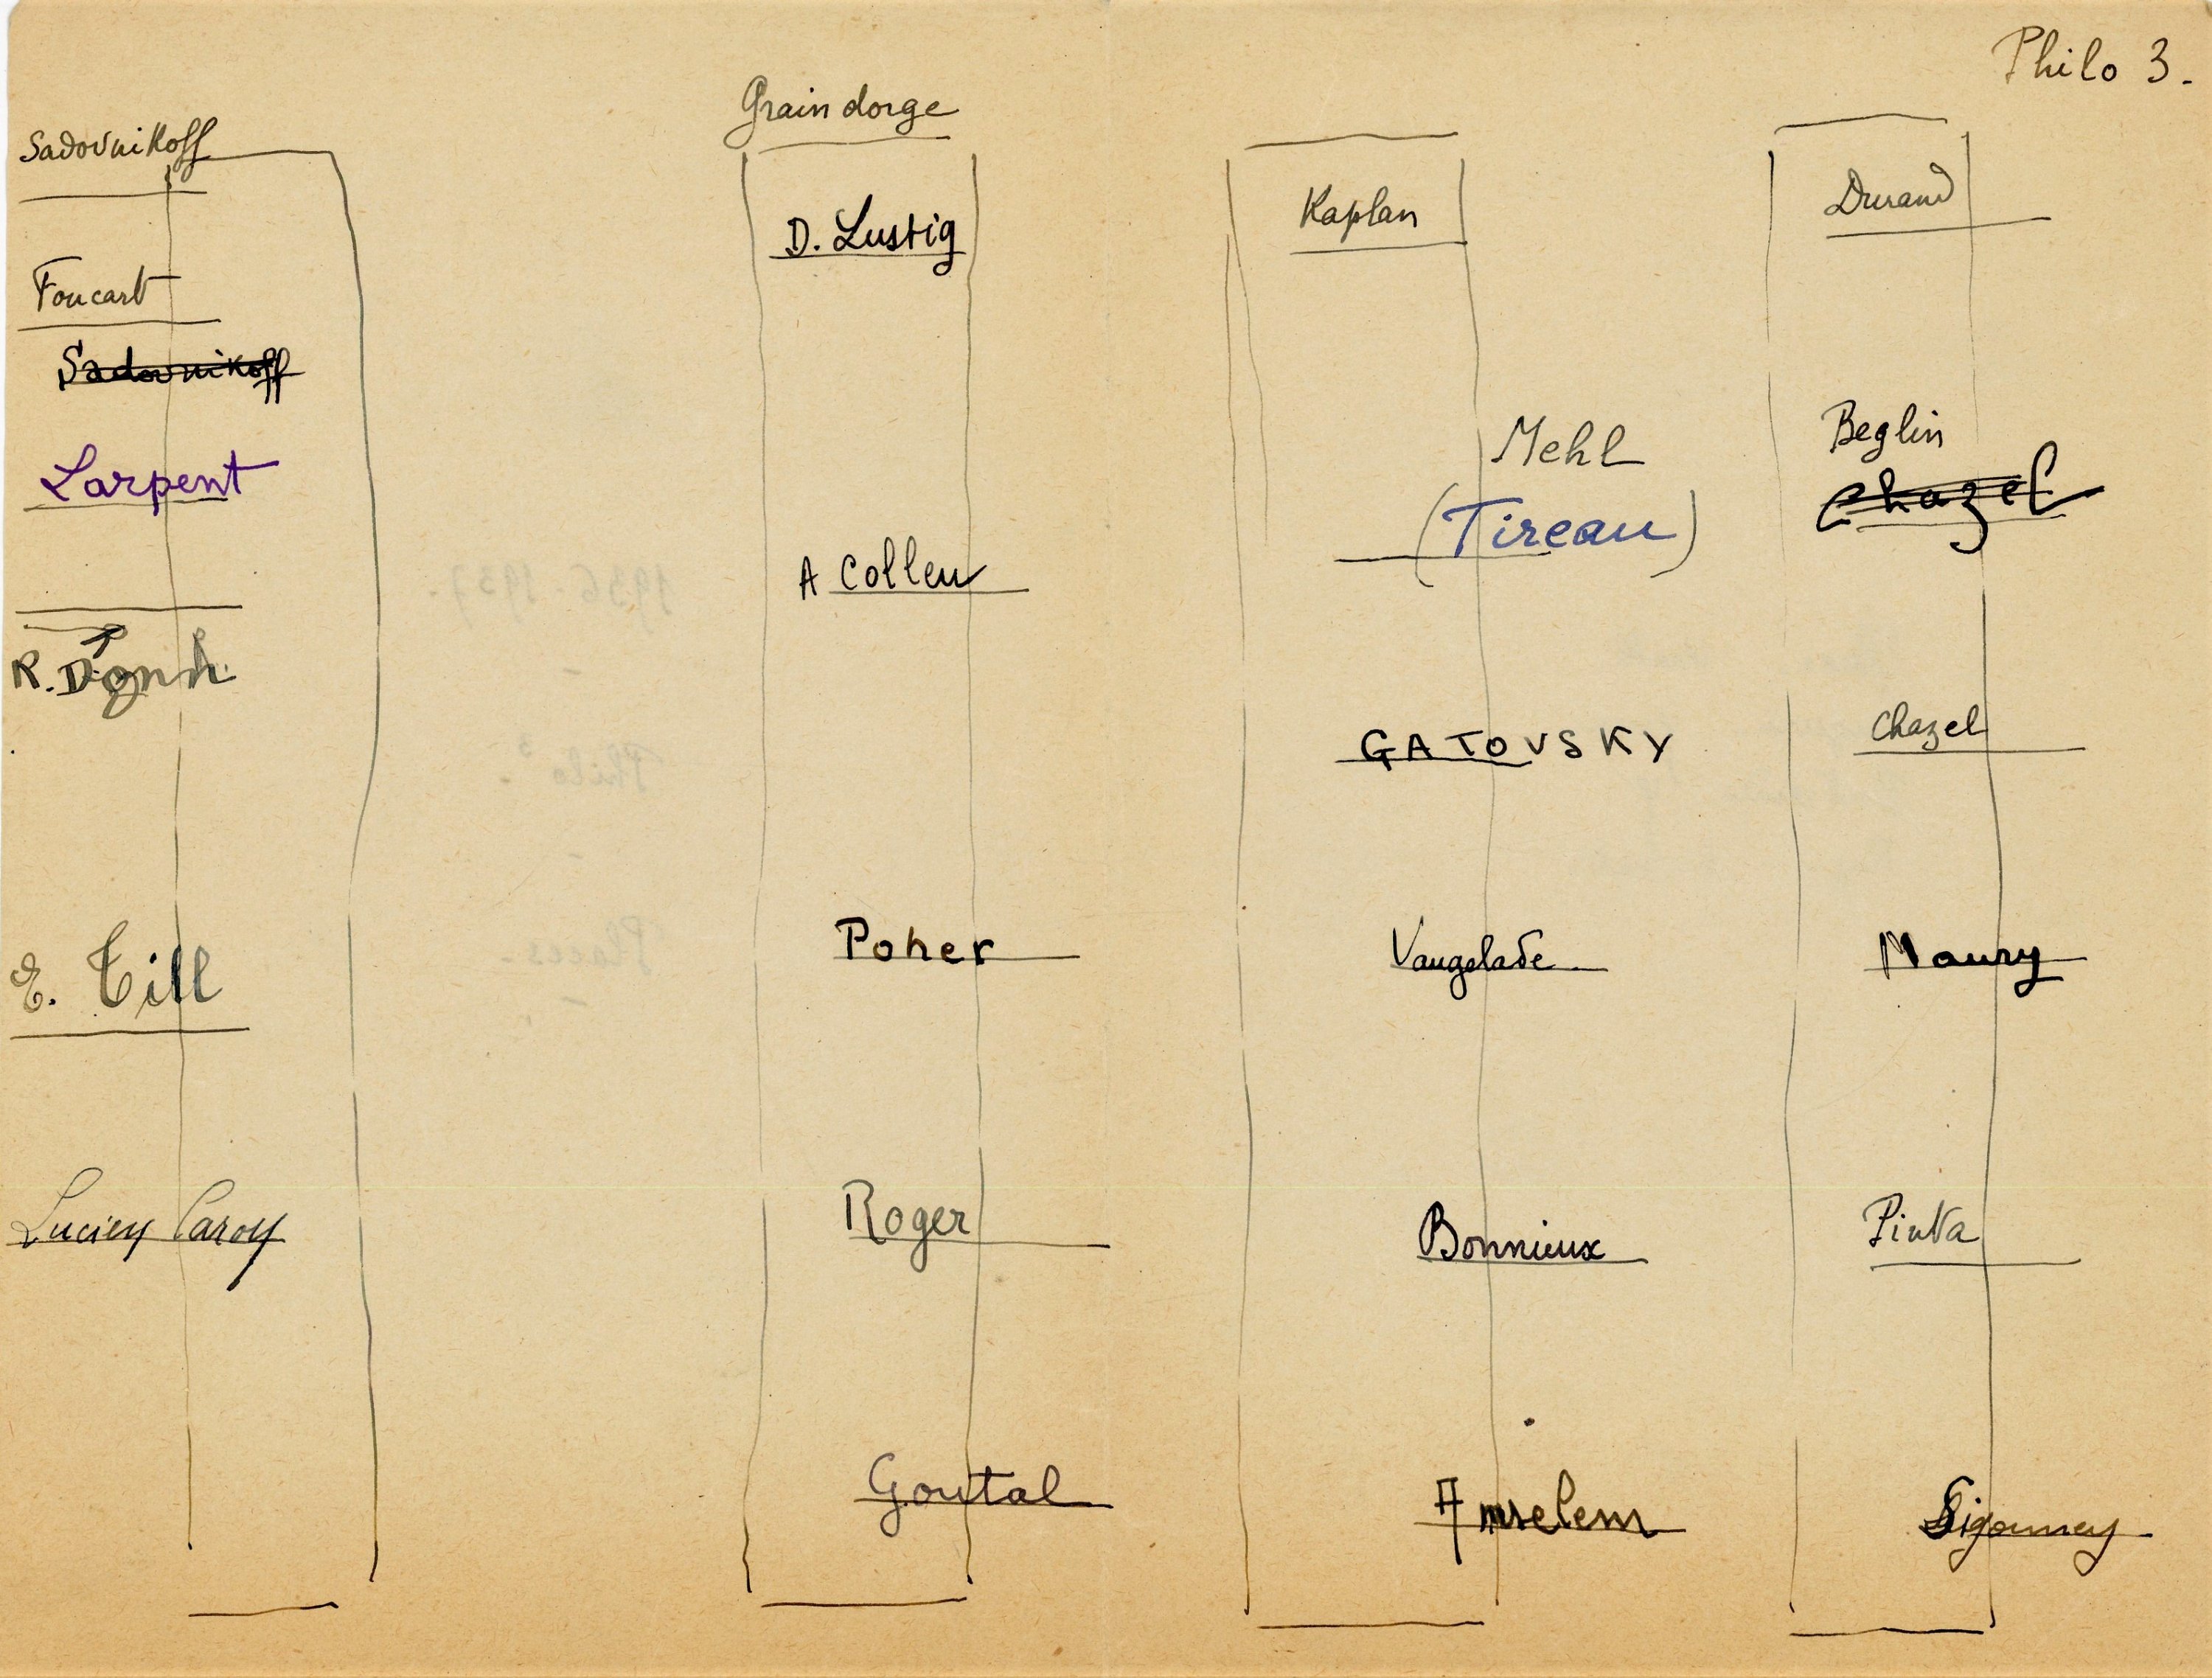 Philo 3.
Sadovnikoff
Foucart
Sadovnikoff
Larpent
E. Till
Lucien Caron
Graindorge
D. Lustig
A Colleu
Poher
Roger
Goutal
Kaplan
Mehl
(Tireau)
GATOVSKY
Vaugelade
Bonnieux
Amselem
Durand
Beglin
Chazel
Chazel
Maury
Pinta
Sigonney
1936-1937.
Philo 3.
Places.